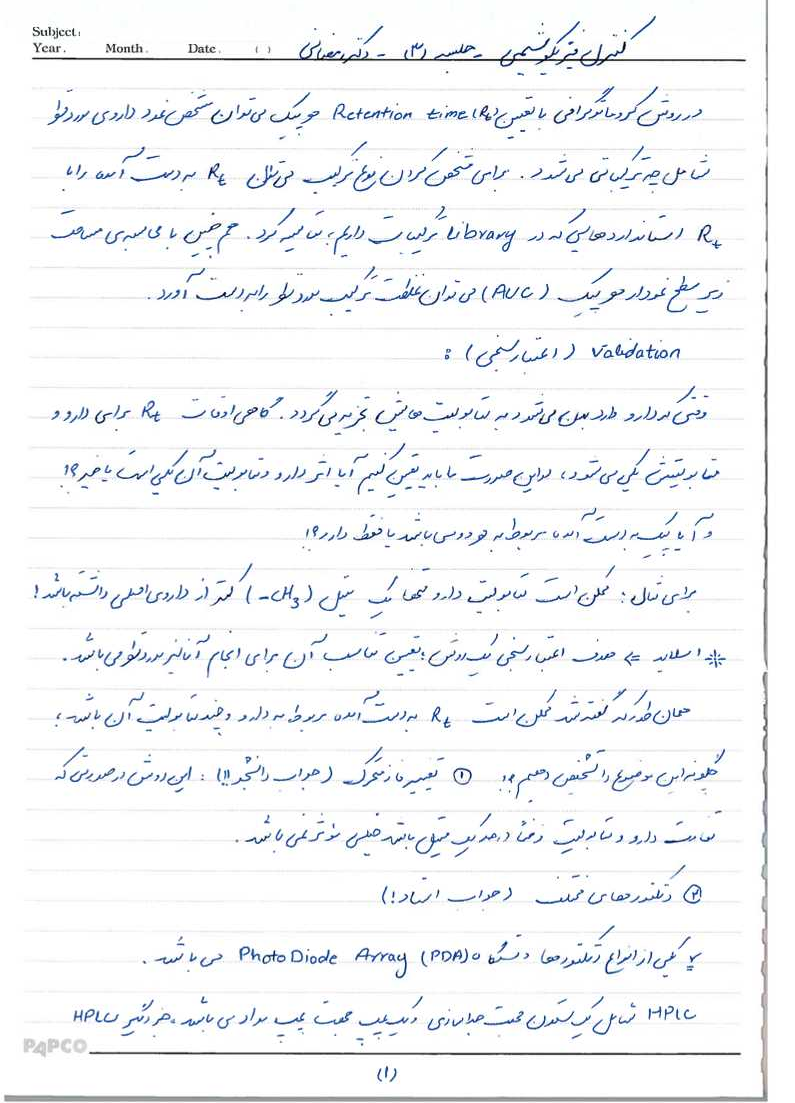 Subject:
Year. Month. Date. ( )
کنترل فیزیکوشیمی - جلسه (۳) - دکتر رمضانی
در روش کروماتوگرافی با تعیین Retention time (Rt) هر پیک می‌توان مشخص نمود داروی مورد نظر
شامل چه ترکیباتی می‌شود. برای مشخص کردن نوع ترکیب می‌توان Rt به دست آمده را با
Rt استانداردهایی که در Library ترکیبات داریم، مقایسه کرد. همچنین با محاسبه‌ی مساحت
زیر سطح نمودار هر پیک (AUC) می‌توان غلظت ترکیب مورد نظر را به دست آورد.
Validation (اعتبارسنجی):
وقتی که دارو وارد بدن می‌شود به متابولیت هایش تجزیه می‌گردد. گاهی اوقات Rt برای دارو و
متابولیتش یکی می‌شود، در این صورت ما باید تعیین کنیم آیا اثر دارو و متابولیت آن یکی است یا خیر؟!
و آیا پیک به دست آمده مربوط به هر دو می باشد یا فقط دارو؟!
برای مثال: ممکن است متابولیت دارو تنها یک متیل (-CH3) کمتر از داروی اصلی داشته باشد!
* اسلاید ⇐ هدف اعتبارسنجی یک روش؛ تعیین تناسب آن برای انجام آنالیز مورد نظر می باشد.
همان طور که گفته شد ممکن است Rt به دست آمده مربوط به دارو و چند متابولیت آن باشد؛
چگونه این موضوع را تشخیص دهیم؟! ① تغییر فاز متحرک (جواب دانشجو!!): این روش در صورتی که
تفاوت دارو و متابولیت فقط در حد یک متیل باشد خیلی موثر نمی باشد.
② دتکتورهای مختلف (جواب استاد!)
یکی از انواع دتکتورها دستگاه Photo Diode Array (PDA) می باشد.
HPLC شامل یک ستون جهت جداسازی و یک پمپ جهت پمپ مواد می باشد، HPLC
PAPCO
(۱)